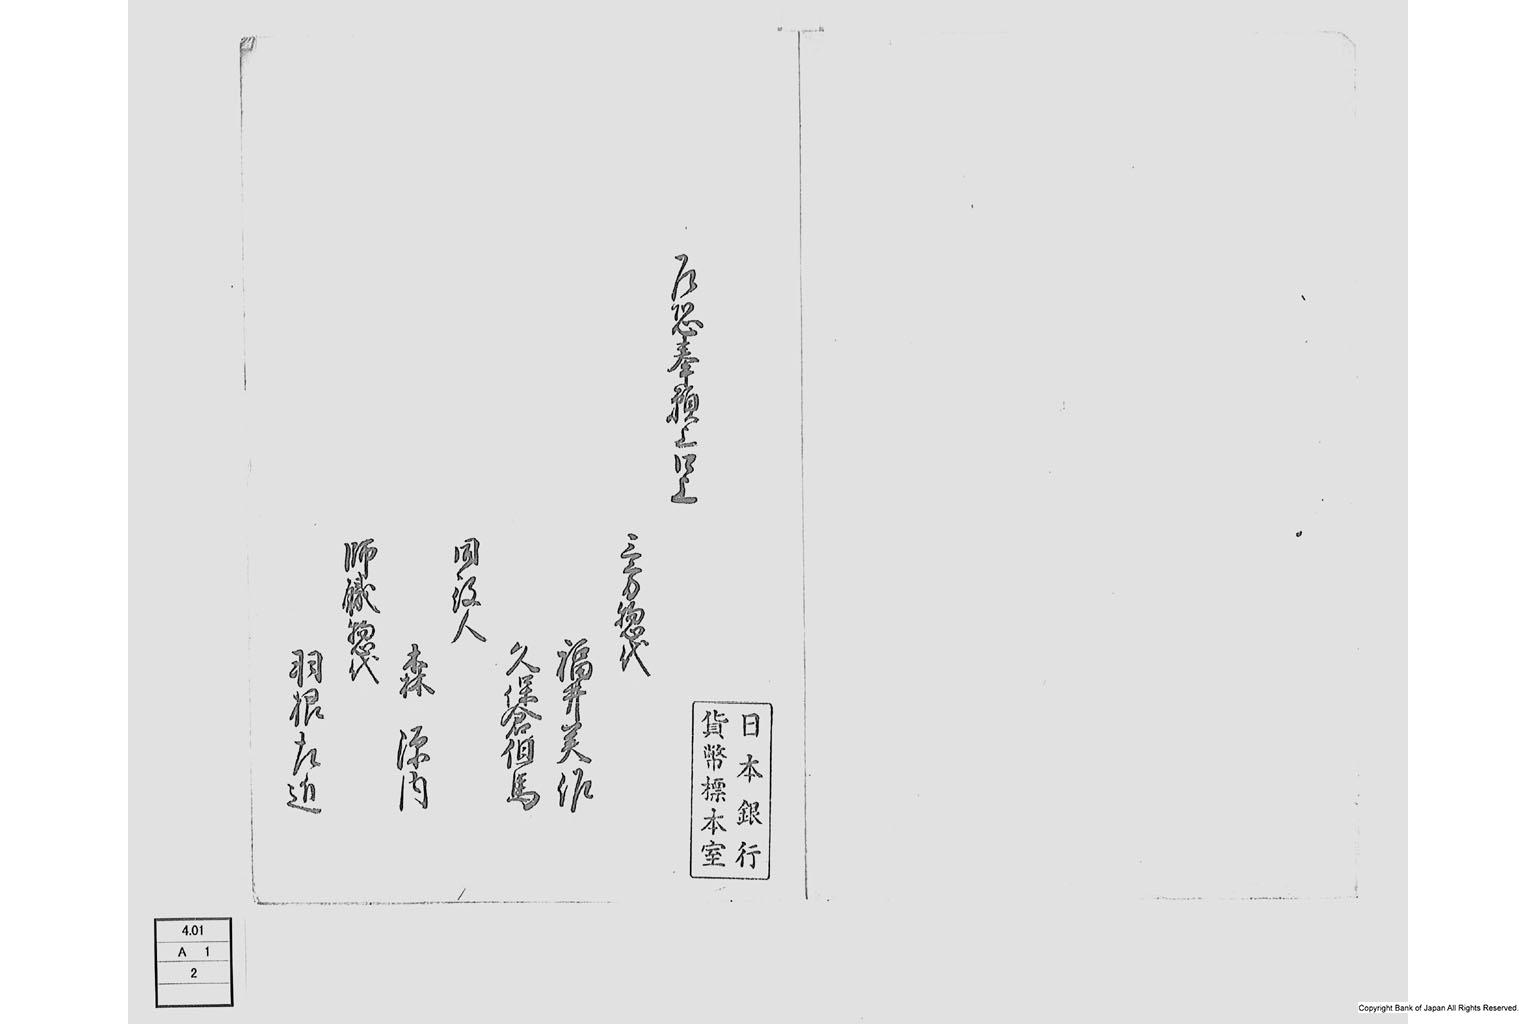 乍恐奉願上口上
三方惣代
福井美作
久保倉但馬
同役人
森 源内
師職惣代
羽根左近
日本銀行
貨幣標本室
4.01
A 1
2
Copyright Bank of Japan All Rights Reserved.